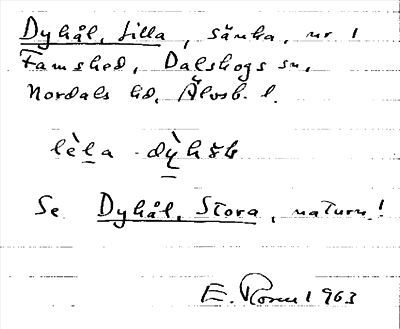 Dyhål, Lilla, sänka, nr 1
Famshed, Dalskogs sn,
Nordals hd, Älvsb. l.
lèla dỳhåll
Se Dyhål, Stora, naturn!
E. Rosen 1963